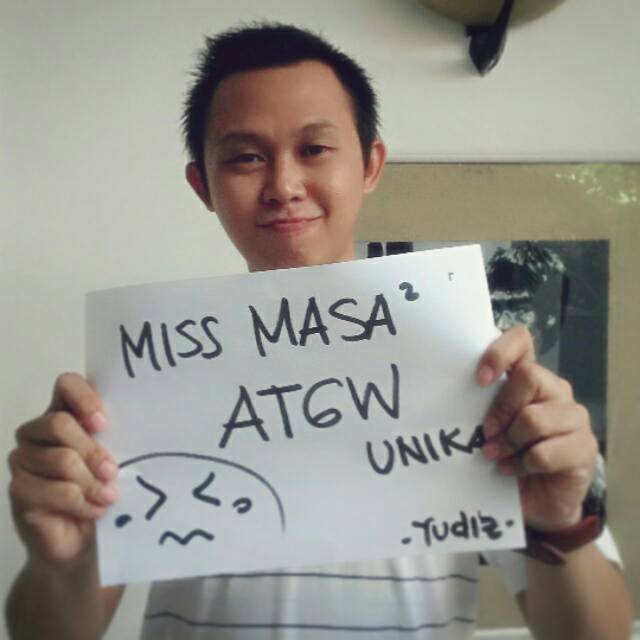 MISS MASA²
ATGW
UNIKA
-Yudiz-